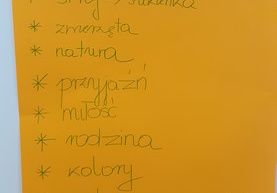 * zwierzęta
* natura
* przyjaźń
* miłość
* rodzina
* kolory